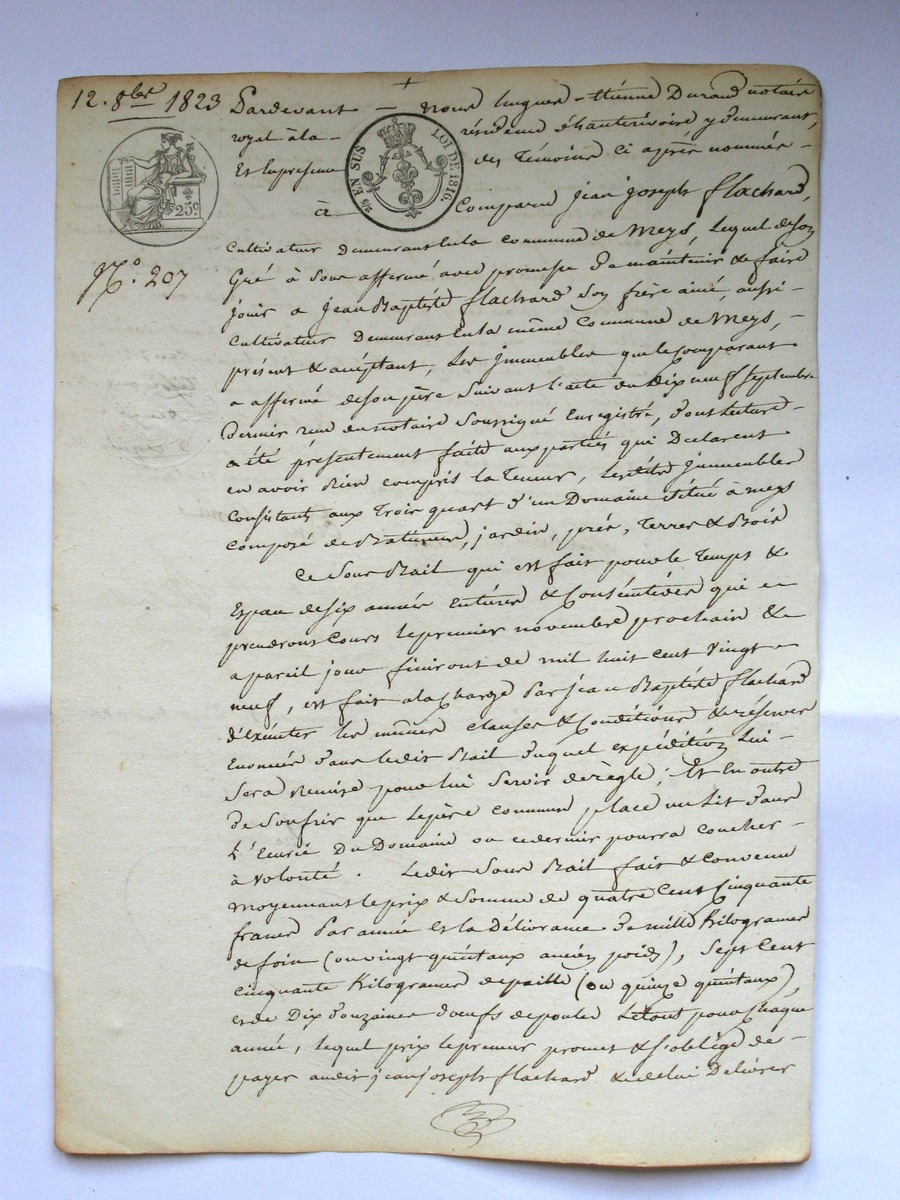 12. 8bre 1823
Pardevant – Nous hugues – Etiénne Durand notaire
royal à la – résidence d'hauterivoire y demeurant,
Et En presence des Témoins Ci après nommés –
2/5 EN SUS LOI DE 1816.
25c
Comparu jean joseph flachard,
N.º 207
Cultivateur demeurant En la commune de Meys, Lequel de son
Gré à Sous affermé avec promesse De maintenir & faire
jouir a jean Baptiste flachard Son frère ainé, aussi –
Cultivateur Demeurant En la même Commune de Meys, –
présent & acéptant, Les jmmeubles que le Comparant
a affermé de Son père Suivant l'acte du Dix neuf Septembre
Dernier reçu du notaire Soussigné Enregistré, dont Lecture –
a été présentement faite aux parties qui Declarent
en avoir Bien compris la Teneur, Lesdits jmmeubles
Consistants aux Trois quart d'un Domaine situé à meys
Composé de Batiments, jardin, prés, Terres & Bois
Ce Sous Bail qui est fait pour le Temps &
Espace de Six années Entières & Consécutives qui –
prendront Cours le premier novembre prochain &
a pareil jour finiront de mil huit Cent Vingt –
neuf, est fait a la Charge Par jean Baptiste flachard
d'Executer les mêmes clauses & Conditions & réserves
Enoncées dans ledit Bail duquel expédition Lui –
Sera Remise pour lui Servir de règle; Et En outre
De Soufrir que le père commun place un Lit dans
L'Ecurie Du Domaine ou ce dernier pourra Coucher –
à Volonté. Ledit Sous Bail fait & Convenu
moyennant le prix & Somme de quatre Cent Cinquante
francs Par année Et la Délivrance De mille Kilogrames
de foin (ou vingt quintaux ancien poids), Sept Cent
Cinquante Kilogrames de paille (ou quinze quintaux)
et de Dix Douzaines d'oeufs de poules Le tout pour Chaque
année, lequel prix le preneur promet & s'oblige de –
payer audit jean joseph flachard & de lui Delivrer